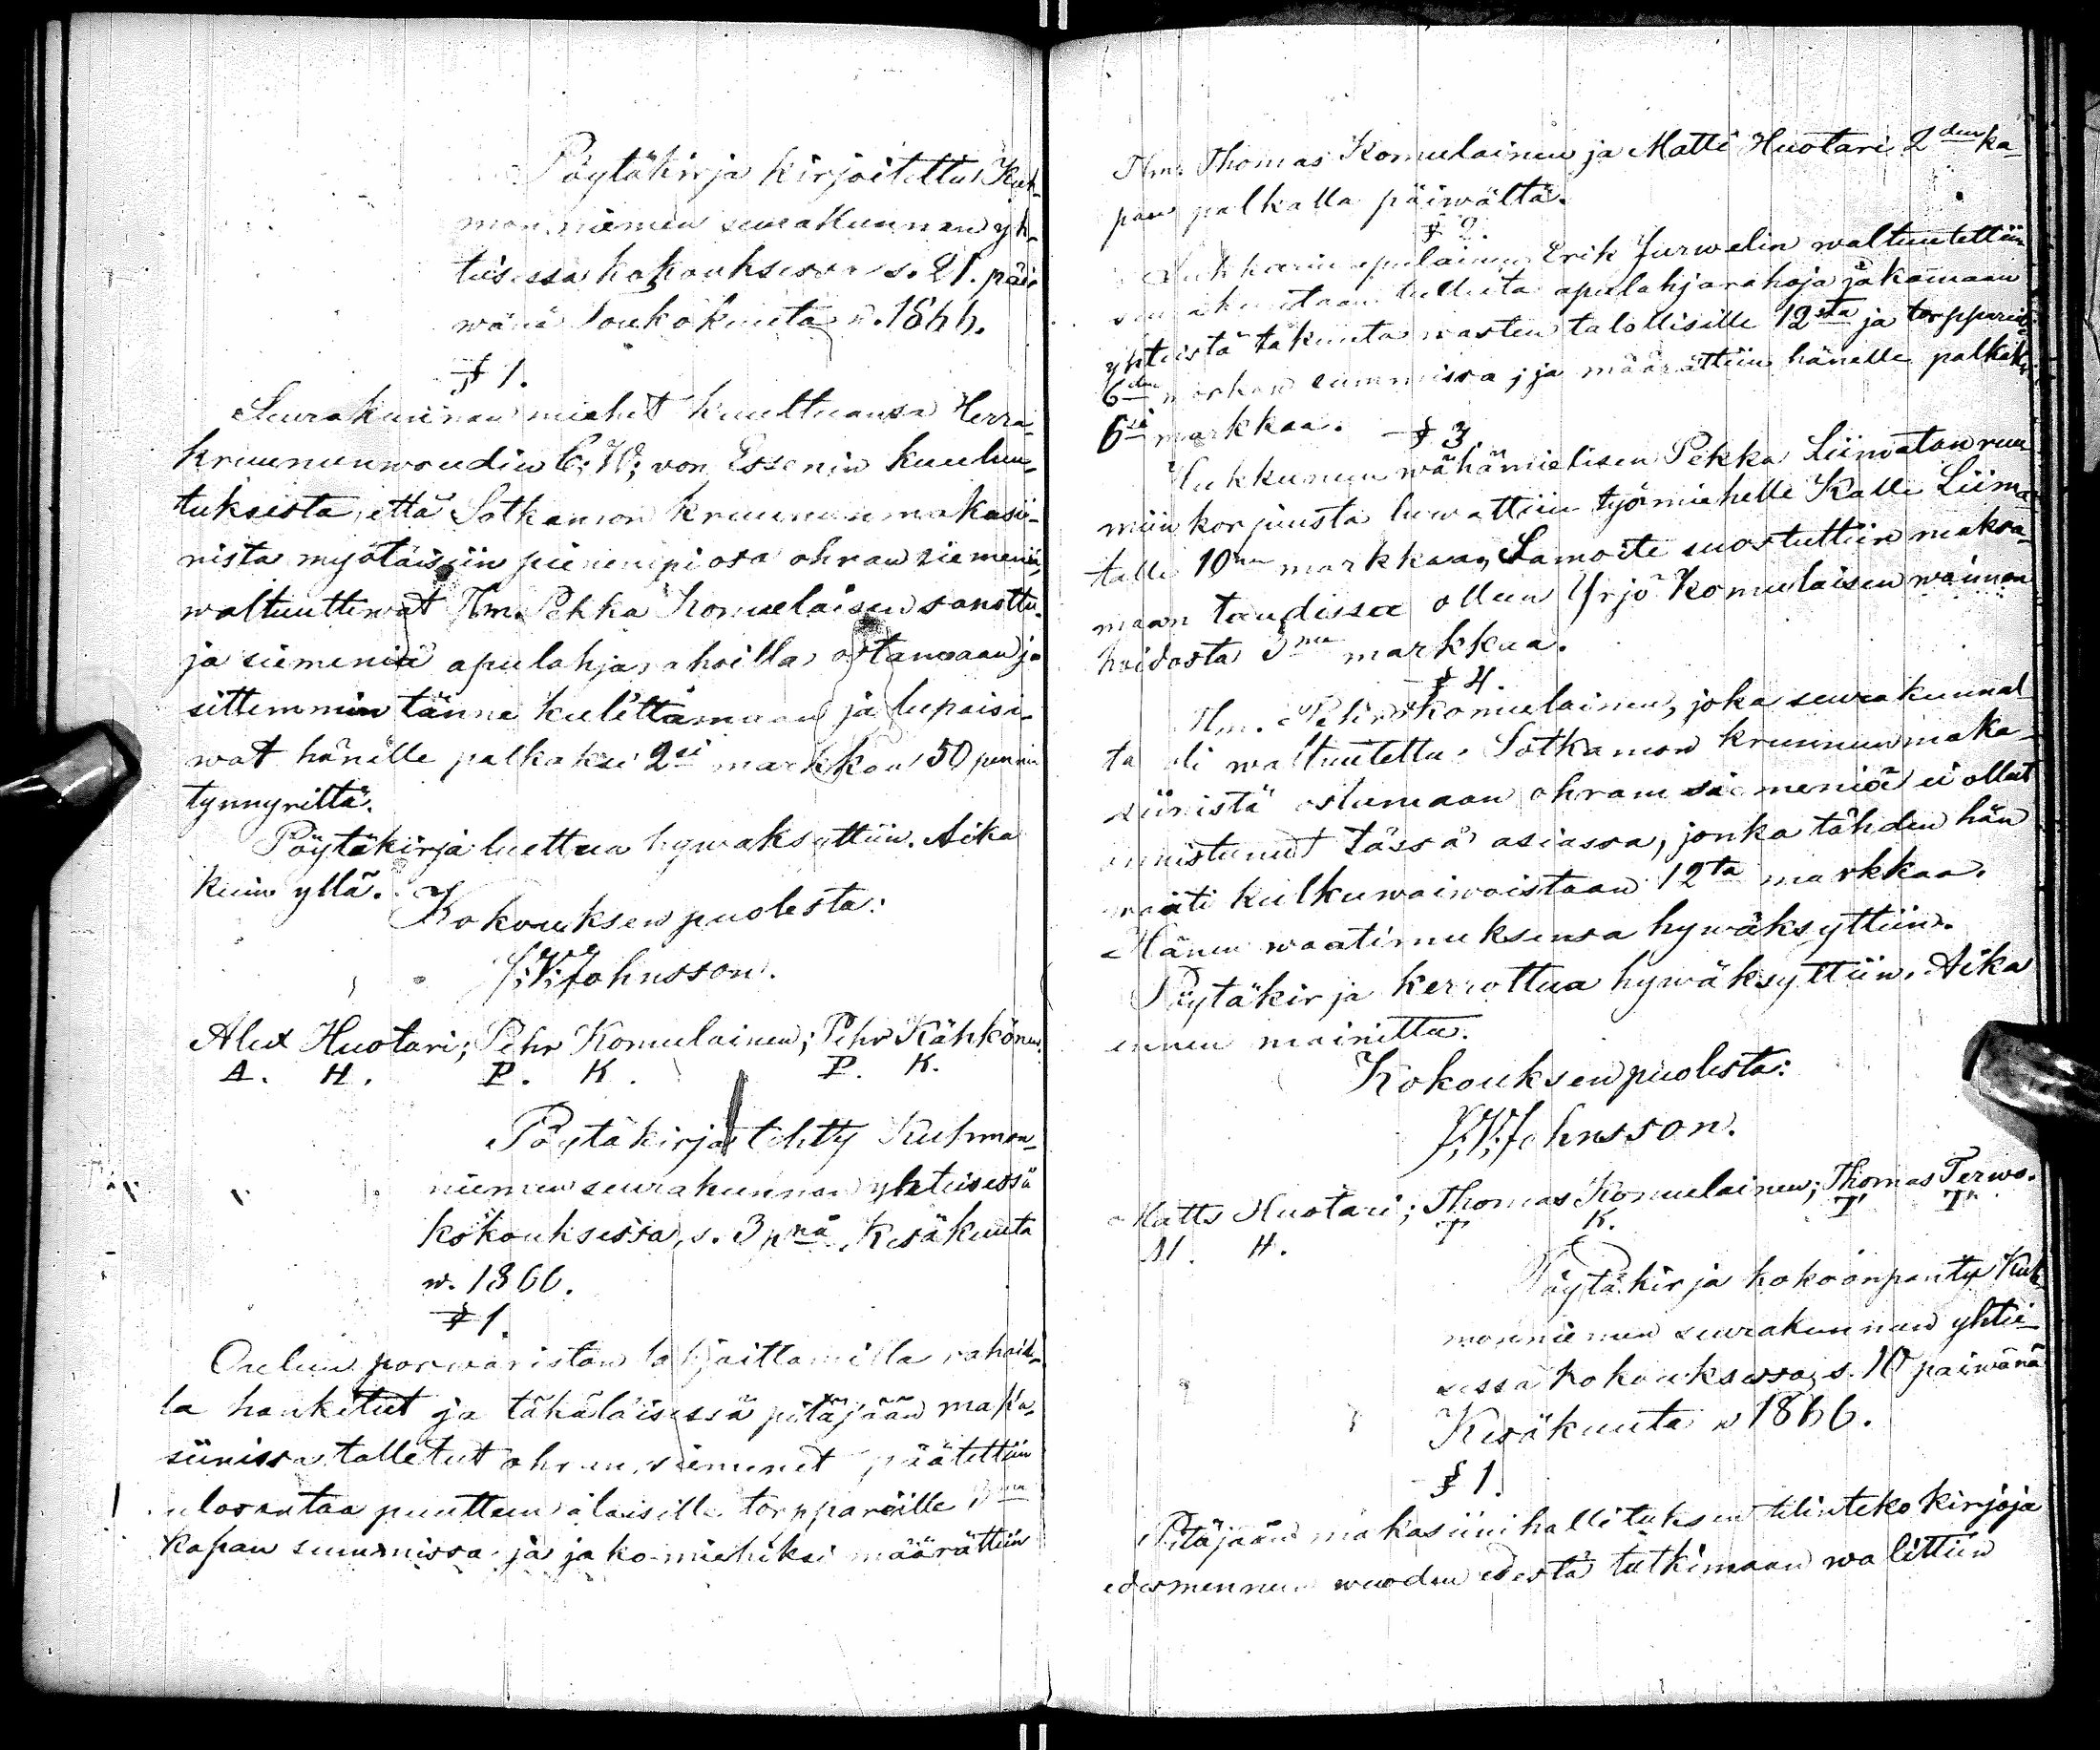 Pöytäkirja kirjoitettu Kuh-
mon niemen seurakunnan yh-
teisessä kokouksessa s. 21. päi-
wänä Toukokuuta w. 1866.
§ 1.
Seurakunnan miehet kuultuansa Herra
kruununwoudin C: W: von Essenin kuulu-
tuksesta, että Sotkamon kruununmakasii-
nista myötäisiin pienempi osa ohran siemeniä,
waltuuttiwat Hm. Pekka Komulaisen sanottu-
ja siemeniä apulahjarahoilla ostamaan ja
sittemmin tänne kulettamaan ja lupaisi-
wat hänelle palkaksi 2si markkaa 50 penniä
tynnyriltä.
Pöytäkirja luettua hywäksyttiin. Aika
kuin yllä.
Kokouksen puolesta:
J: W: Johnsson.
Alex Huotari; Pehr Komulainen; Pehr Kähkönen.
A. H. P. K. P. K.
Pöytäkirja tehty Kuhmon-
niemen seurakunnan yhteisessä
kokouksessa, s. 3 pnä Kesäkuuta
w. 1866.
§ 1.
Oulun porwariston lahjoittamilla rahoil-
la hankitut ja tähäläisessä pitäjään maka-
siinissa talletut ohran siemenet päätettiin
ulosantaa puutteen alaisille torppareille
kapan summissa ja jakomieheksi määrättiin
Hm: Thomas Komulainen ja Matti Huotari 2den ka-
pan palkalla päiwältä.
§ 2.
Lukkarin apulainen Erik Jurwelin waltuutettiin
seurakuntaan tulleita apulahjarahoja jakamaan
yhteistä takuuta wasten talollisille 12sta ja torppareille
6den markan summissa; ja määrättiin hänelle palkaksi
6si markkaa.
§ 3
Hukkunen wähämielisen Pekka Liimatan ruu-
miin korjuusta luwattiin työmiehelle Kalle Liima-
talle 10nen markkaa, Samoite suostuttiin maksa-
maan taudissa olleen Yrjö Komulaisen waimon
hoidosta markkaa.
§ 4.
Hm. Petter Komulainen, joka seurakunnal-
ta oli waltuutettu Sotkamon kruununmaka-
siinistä ostamaan ohran siemeniä ei ollut
onnistunut tässä asiassa, jonka tähden hän
waati kulkuwaiwoistaan 12ta markkaa.
Hänen waatimuksensa hywäksyttiin.
Pöytäkirja kerrottua hywäksyttiin. Aika
ennen mainittu.
Kokouksen puolesta:
J: W: Johnsson.
Matts Huotari; Thomas Komulainen; Thomas Terwo.
M. H. T K. T T
Pöytäkirja kokoonpantu Kuh-
monniemen seurakunnan yhtei-
sessä kokouksessa, s. 10 päiwänä
Kesäkuuta w 1866.
§ 1.
Pitäjään makasiinihallituksen tilinteko kirjoja
edesmenneen wuoden edestä tutkimaan walittiin